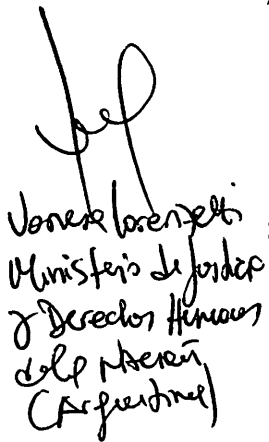 Vanesa Lorenzetti
Ministerio de Justicia
y Derechos Humanos
de la Nación
(Argentina)